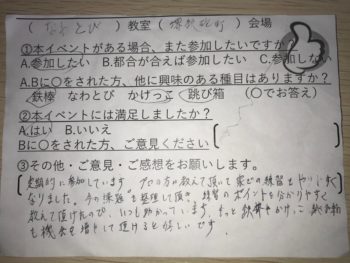 ( なわとび ) 教室 ( ) 会場
①本イベントがある場合、また参加したいですか?
A.参加したい B.都合が合えば参加したい C.参加しない
A.Bに〇をされた方、他に興味のある種目はありますか?
鉄棒 なわとび かけっこ 跳び箱 (〇でお答え)
②本イベントには満足しましたか?
A.はい B.いいえ
Bに〇を書いた方、ご意見ください
③その他・ご意見・ご感想をお願いします。
定期的に参加しています プロの方に教えて頂いて家での練習もやりやすく
なりました。今の課題も整理して頂き、練習のポイントを分かりやすく
教えて頂けたので、いつも助かっています。もっと鉄棒やかけっこ
も機会を増やして頂けると嬉しいです。